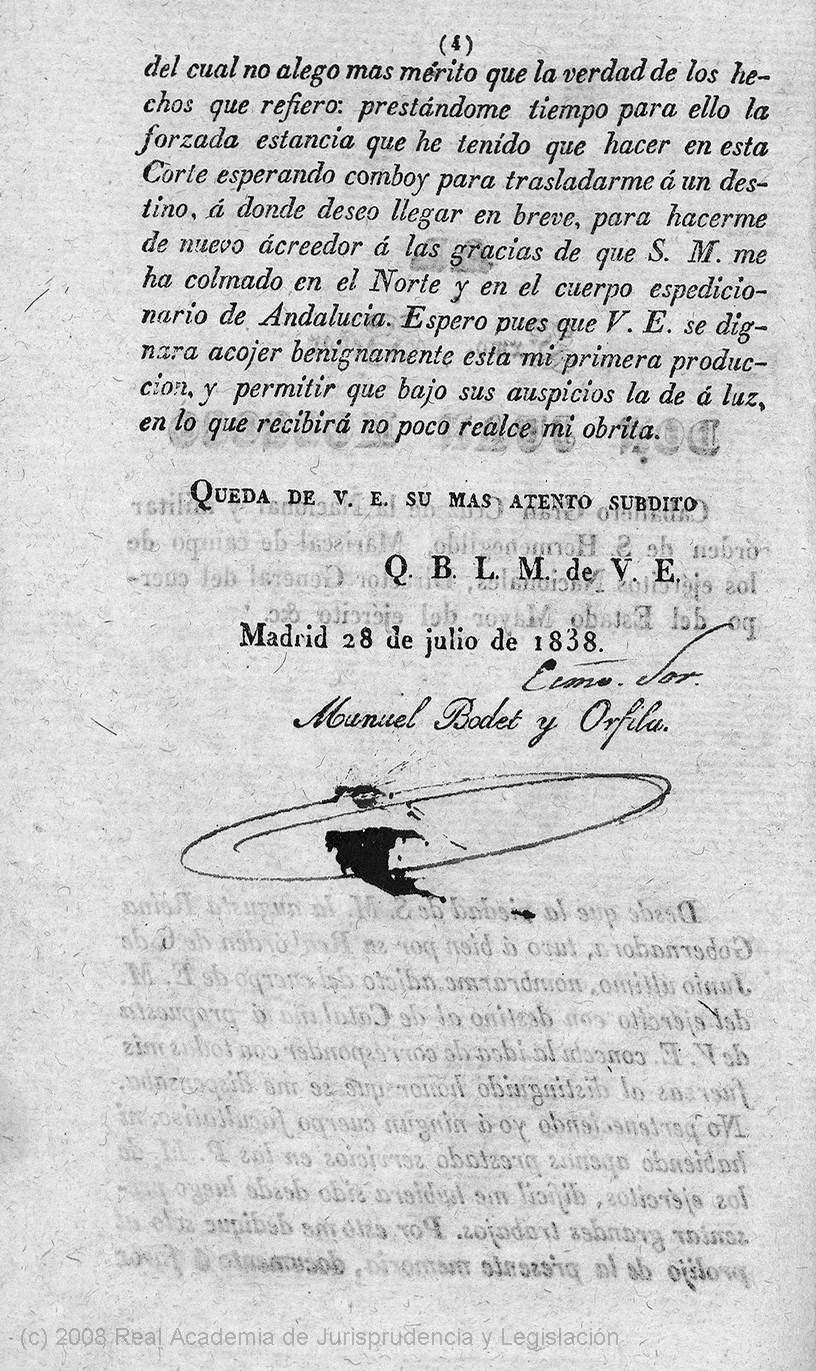 (4)
del cual no alego mas mérito que la verdad de los he-
chos que refiero: prestándome tiempo para ello la
forzada estancia que he tenído que hacer en esta
Corte esperando comboy para trasladarme á un des-
tino, á donde deseo llegar en breve, para hacerme
de nuevo ácreedor á las gracias de que S. M. me
ha colmado en el Norte y en el cuerpo espedicio-
nario de Andalucia. Espero pues que V. E. se dig-
nara acojer benignamente esta mi primera produc-
cion, y permitir que bajo sus auspicios la de á luz,
en lo que recibirá no poco realce mi obrita.
QUEDA DE V. E. SU MAS ATENTO SUBDITO
Q. B. L. M. de V. E.
Madrid 28 de julio de 1838.
Ecmo. Sor.
Manuel Bodet y Orfila.
(c) 2008 Real Academia de Jurisprudencia y Legislación